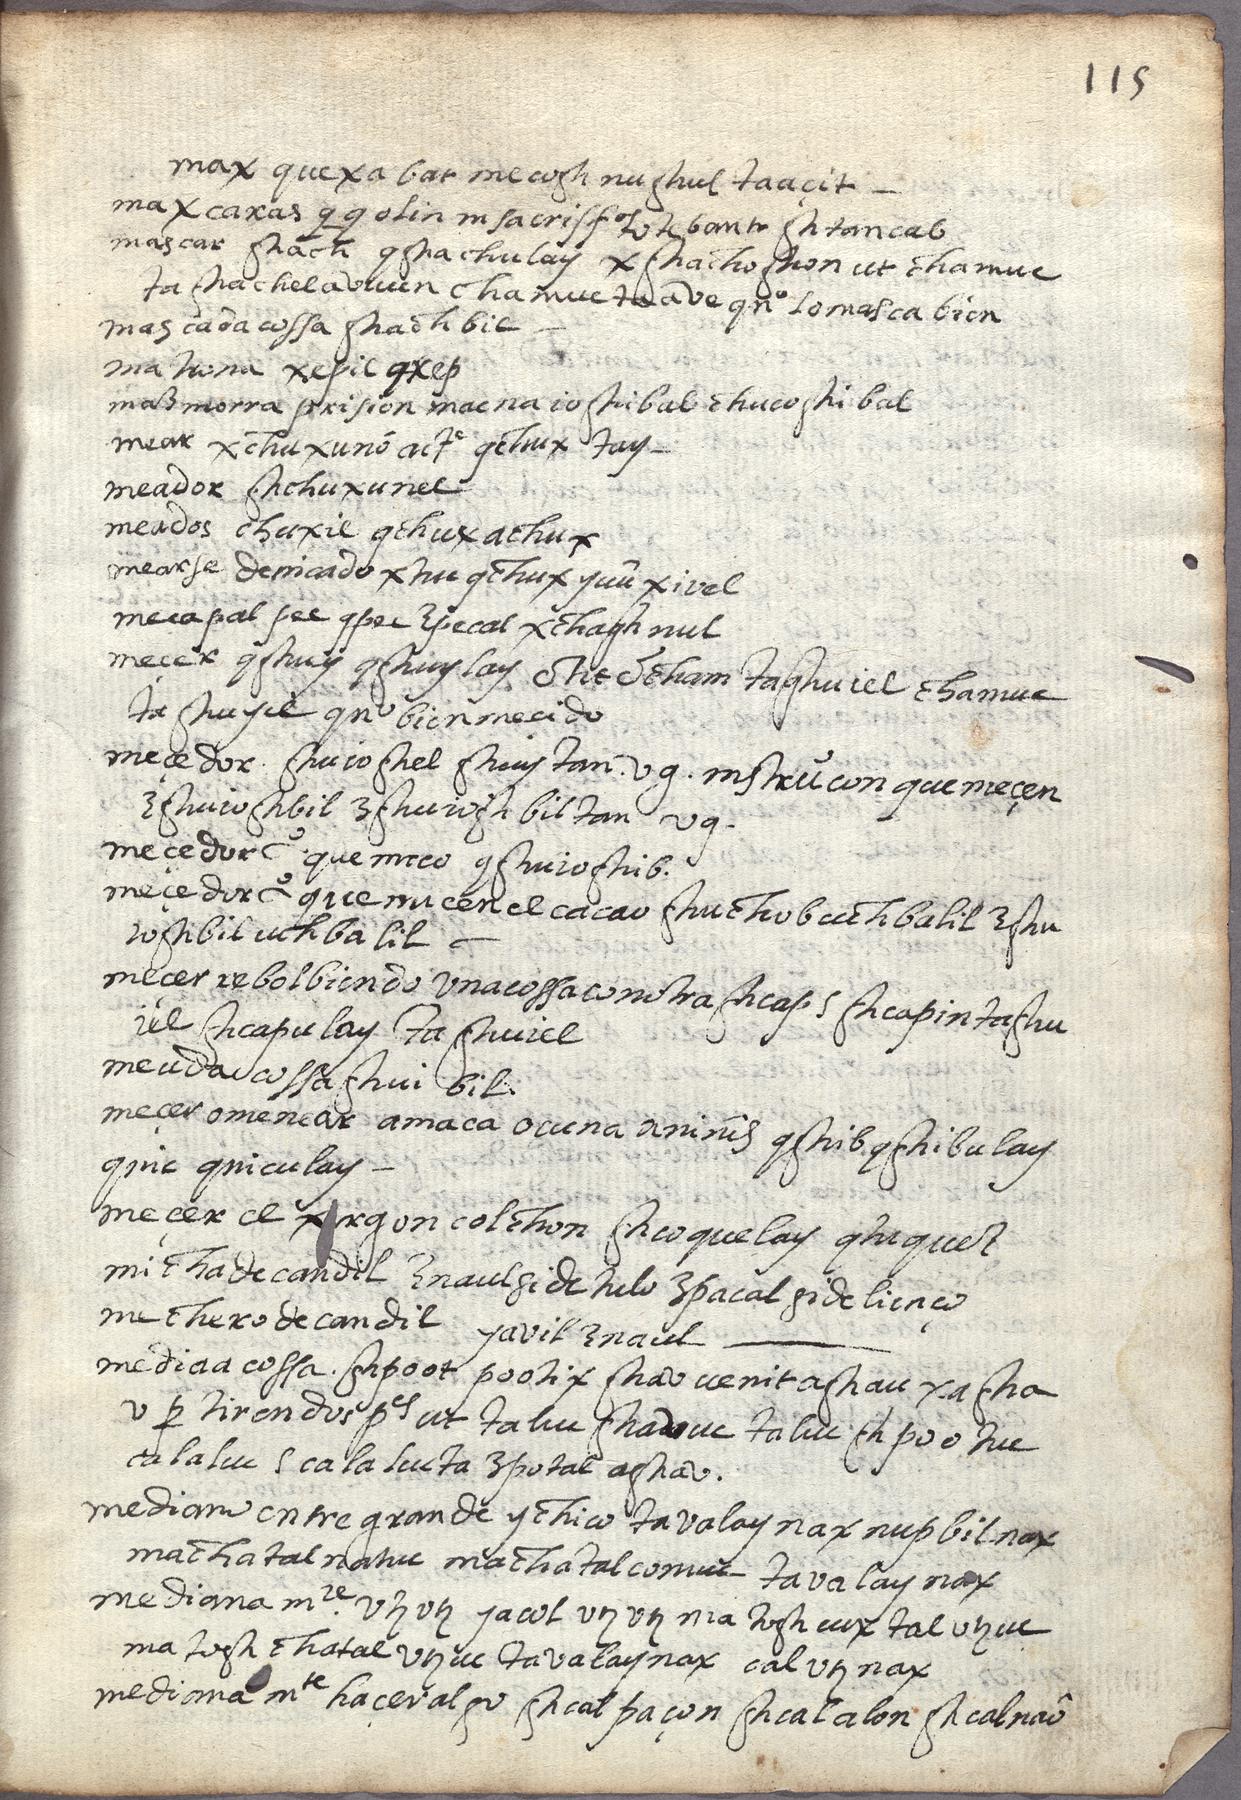 115
max quexabar mecoghnughul taaçit –
maxcaras q̄ q olin
mascar ghach qghachulay xghachoghon ut chamuc
ta ghachelavuun chamuc taave qno lo masca bien
mascada cossa ghachbil –
matrona xepil qxep
mazmorra prision macnaioghibal chucoghibal
mear xchuxunō qchux tay –
meador ghchuxunel
meados chuxil qchux achux
mearse denicado xhu qchux yuū xivel
mecapal pec qpec 3pecal xchagh nul
meçer qghuy qghuylay taghuiel chamuc
ta ghuyel qno bien mecido
meçedor. ghuioghel ghuytan. vg. instrū con que meçen
3ghuioghbil 3ghuioghbiltan vg.
meçedor que meco qghuioghib.
meçedor que micen el cacao ghuchobuchbalil 3ghu
ioghbil uchbalil –
meçer rebolbiendo una cossa con otra ghcap s ghcapin taghu
iel ghcapulay taghuiel
meuda cossa ghuibil.
meçer o menear amaca o cuna qghib qghibulay
qnic qniculay –
meçer el xergon colchon ghcoquelay
mecha de candil 3naul si de hilo 3pacal si de lienço
mechero de candil yavil 3naul ——
media cossa. ghpoot pootix ghav uenit aghau xagha
v taluc taluc ghpootuc
calaluc s calaluc ta 3potal aghav.
mediano entre grande y chico tavalaynax nupbilnax
machatal natuc machatal comuc tavalaynax
medianamre. vtzvtz yacol vtzvtz ma toghcuxtal vtzuc
ma togh chatal vtzuc tavalaynax cal vtznax
medianamte haçer algo ghcalpaçon ghcalalon ghcalnaō